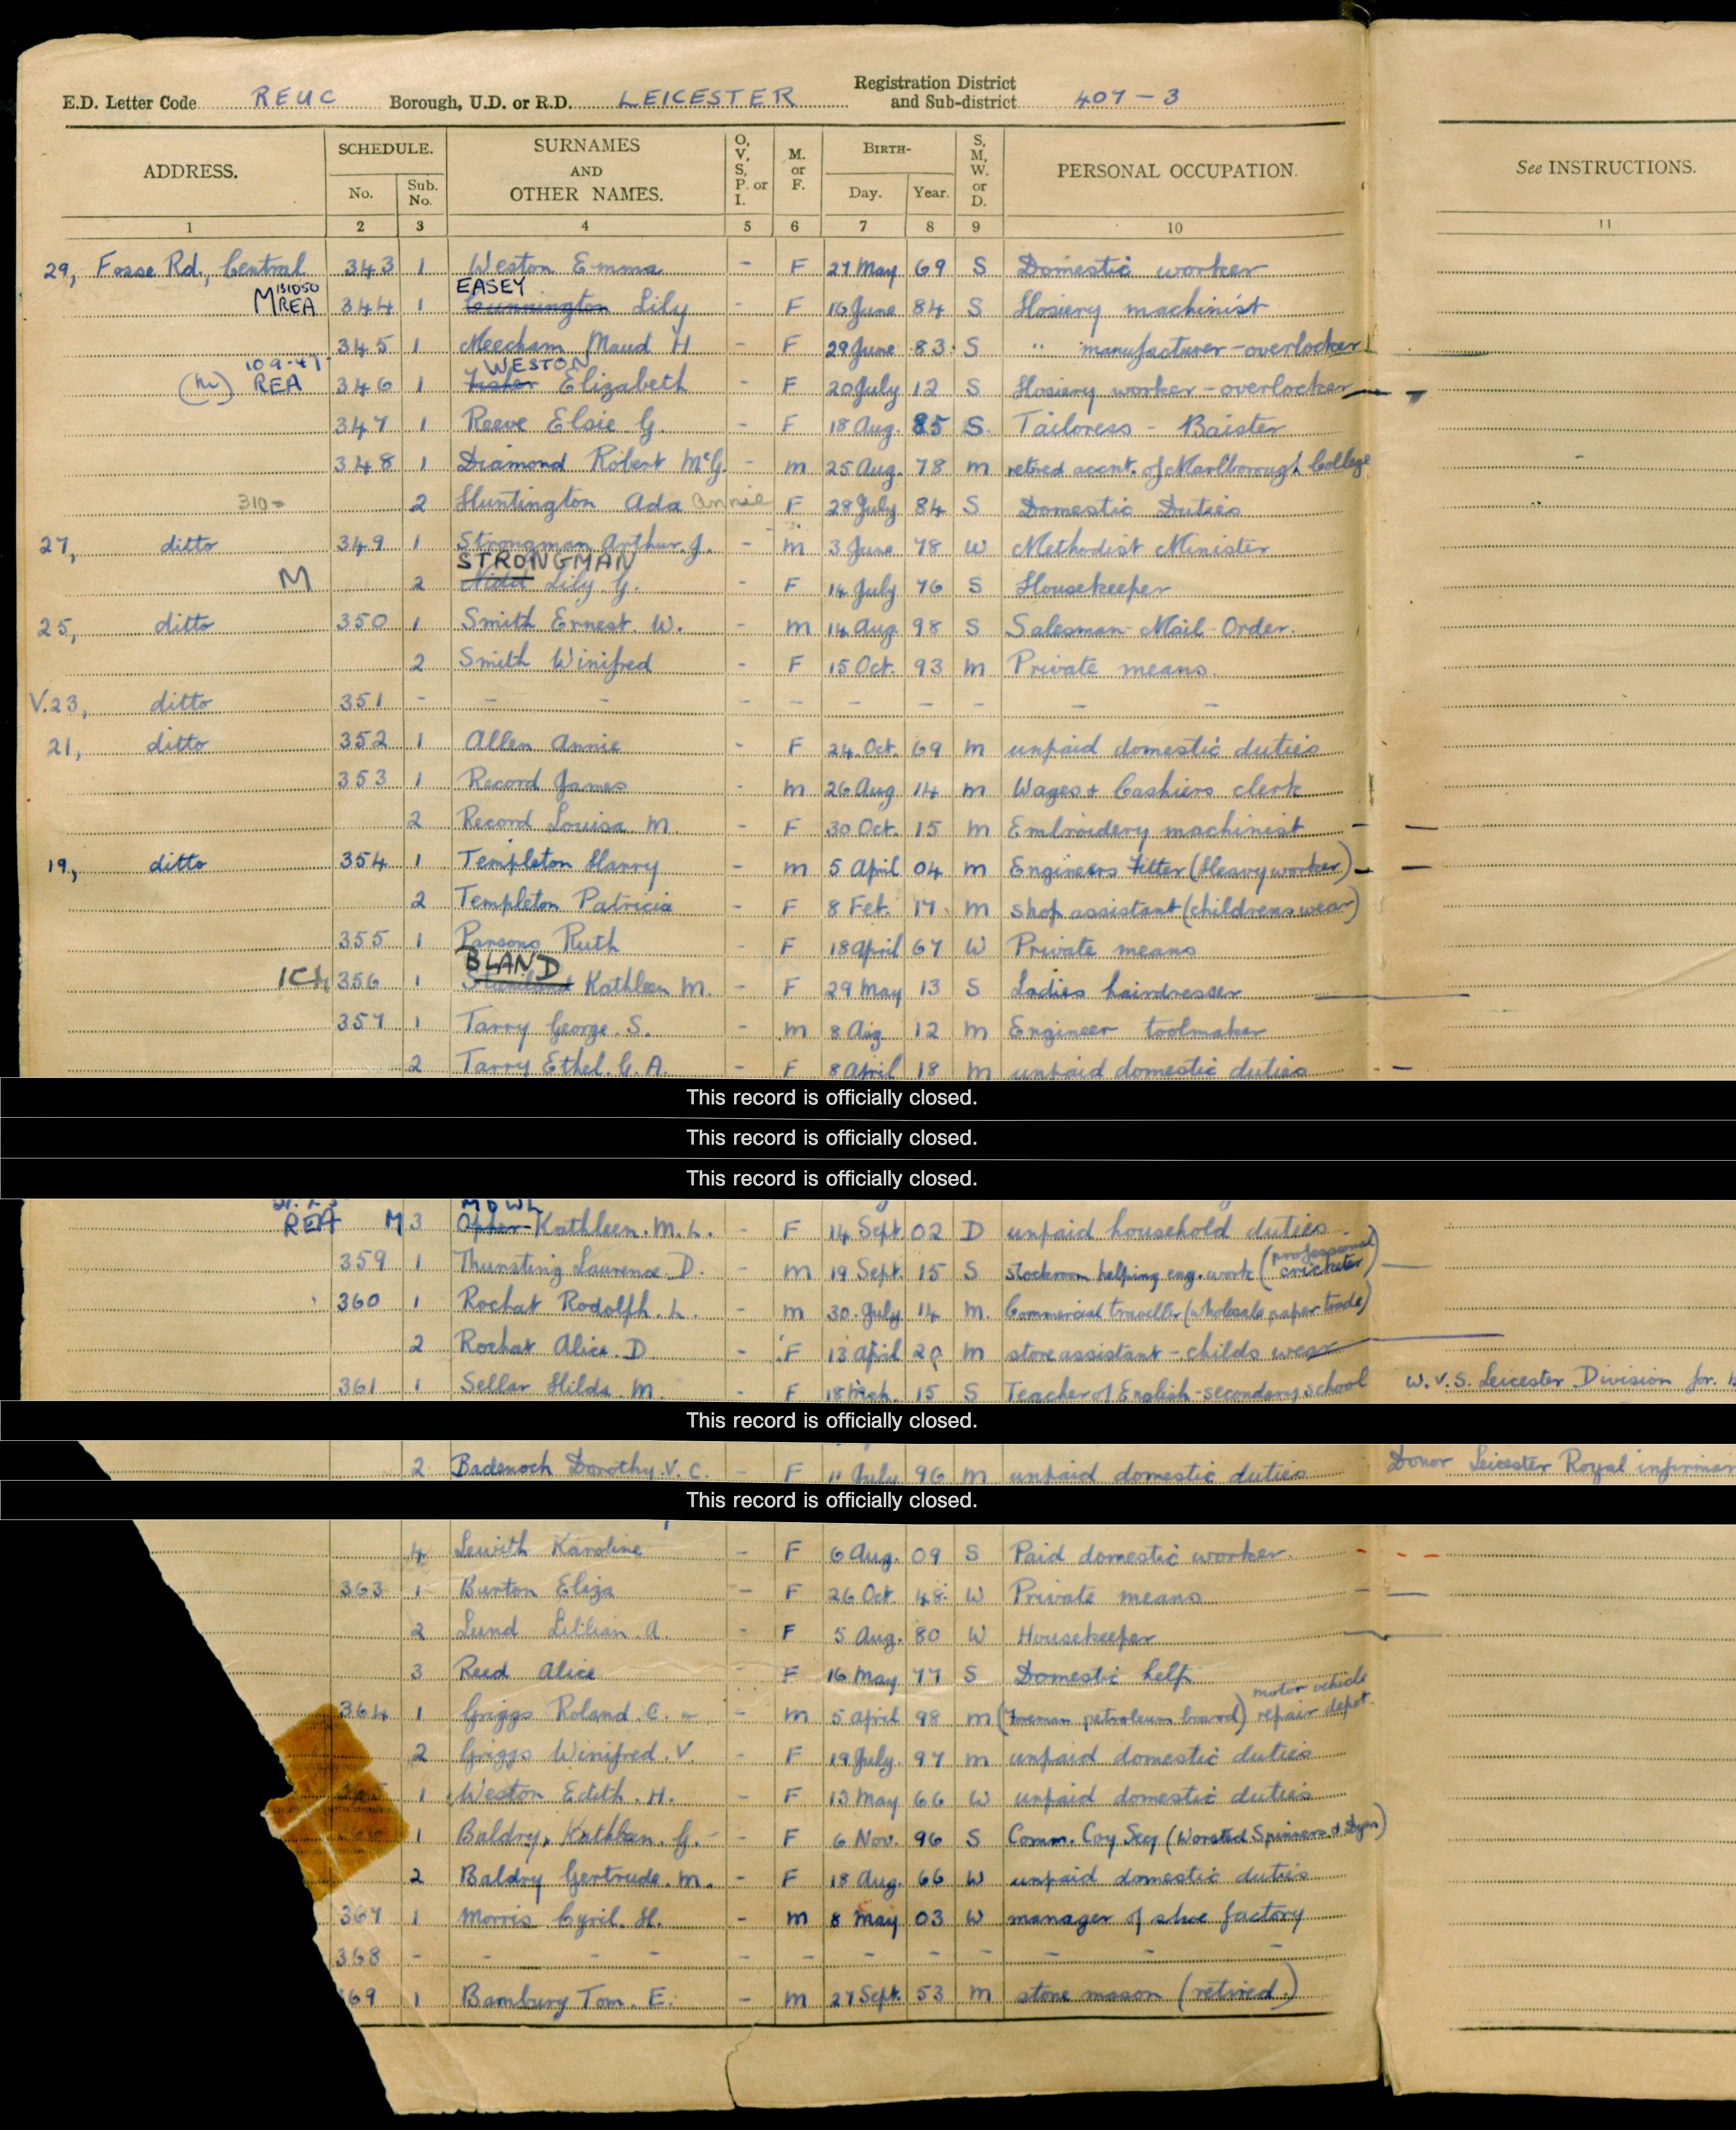 Registration District
E.D. Letter Code REUC Borough, U.D. or R.D. LEICESTER and Sub-district 407-3
ADDRESS. SCHEDULE. No. Sub. No. SURNAMES AND OTHER NAMES. O, V, S, P. or I. M. or F. BIRTH- Day. Year. S, M, W. or D. PERSONAL OCCUPATION. See INSTRUCTIONS.
1 2 3 4 5 6 7 8 9 10 11
29, Fosse Rd., Central 343 1 Weston Emma - F 27 May 69 S Domestic worker
EASEY
M REA 344 1 Cunnington Lily - F 16 June 84 S Hosiery machinist
345 1 Meecham Maud H - F 29 June 83 S " manufacturer-overlocker
10 9-47 WESTON
(m) REA 346 1 Fisher Elizabeth - F 20 July 12 S Hosiery worker - overlocker
347 1 Reeve Elsie G. - F 18 Aug. 85 S. Tailoress - Baister
348 1 Diamond Robert McG. - m 25 Aug. 78 m retired accnt. of Marlborough College
310 2 Huntington Ada Annie F 28 July 84 S Domestic Duties
27, ditto 349 1 Strongman Arthur. J. - m 3 June 78 W Methodist Minister
STRONGMAN
M 2 Lily. G. - F 14 July 76 S Housekeeper
25, ditto 350 1 Smith Ernest. W. - m 14 Aug 98 S Salesman - Mail - Order.
2 Smith Winifred - F 15 Oct. 93 m Private means.
V.23, ditto 351 - - - - - - - - - -
21, ditto 352 1 Allen Annie - F 24 Oct. 69 m unpaid domestic duties
353 1 Record James - m 26 Aug 14 m Wages + Cashiers clerk
2 Record Louisa M. - F 30 Oct. 15 m Embroidery machinist -
19, ditto 354 1 Templeton Harry - m 5 April 04 m Engineers Fitter (Heavy worker) -
2 Templeton Patricia - F 8 Feb. 17 m shop assistant (childrens wear)
355 1 Parsons Ruth - F 18 april 67 W Private means
BLAND
356 1 Kathleen M. - F 29 May 13 S Ladies hairdresser
357 1 Tarry George. S. - m 8 Aug 12 m Engineer toolmaker
2 Tarry Ethel. G. A. - F 8 april 18 m unpaid domestic duties
This record is officially closed.
This record is officially closed.
This record is officially closed.
REA M 3 Kathleen. M. L. - F 14 Sept 02 D unpaid household duties
359 1 Thursting Laurence. D. - m 19 Sept. 15 S stockroom helping eng. work (professional cricketer)
360 1 Rochat Rodolph. L. - m 30 July 14 m. Commercial traveller (wholesale paper trade)
2 Rochat Alice. D - F 13 april 20 m store assistant - childs wear
361 1 Sellar Hilda. M. - F 18 Mch. 15 S Teacher of English - secondary school W.V.S. Leicester Division for.
This record is officially closed.
2 Badenoch Dorothy. V. C. - F 11 July 96 m unpaid domestic duties Donor Leicester Royal infirmar
This record is officially closed.
4 Lewith Karoline - F 6 Aug. 09 S Paid domestic worker. - - -
363 1 Burton Eliza - F 26 Oct 48 W Private means -
2 Lund Lillian. A. - F 5 Aug. 80 W Housekeeper
3 Reed Alice - F 16 May 77 S Domestic help
motor vehicle
364 1 Griggs Roland. C. - m 5 april 98 m (Foreman petroleum board) repair depot.
2 Griggs Winifred. V. - F 19 July. 97 m unpaid domestic duties
1 Weston Edith. H. - F 13 May 66 W unpaid domestic duties
1 Baldry, Kathleen. G. - F 6 Nov. 96 S Comm. Coy Secy (Worsted Spinners & Dyers)
2 Baldry Gertrude. M. - F 18 Aug. 66 W unpaid domestic duties
367 1 Morris Cyril. H. - m 8 May 03 W manager of shoe factory
368 - - - - - - - - - - - -
369 1 Bambury Tom. E. - m 27 Sept. 53 m stone mason (retired)